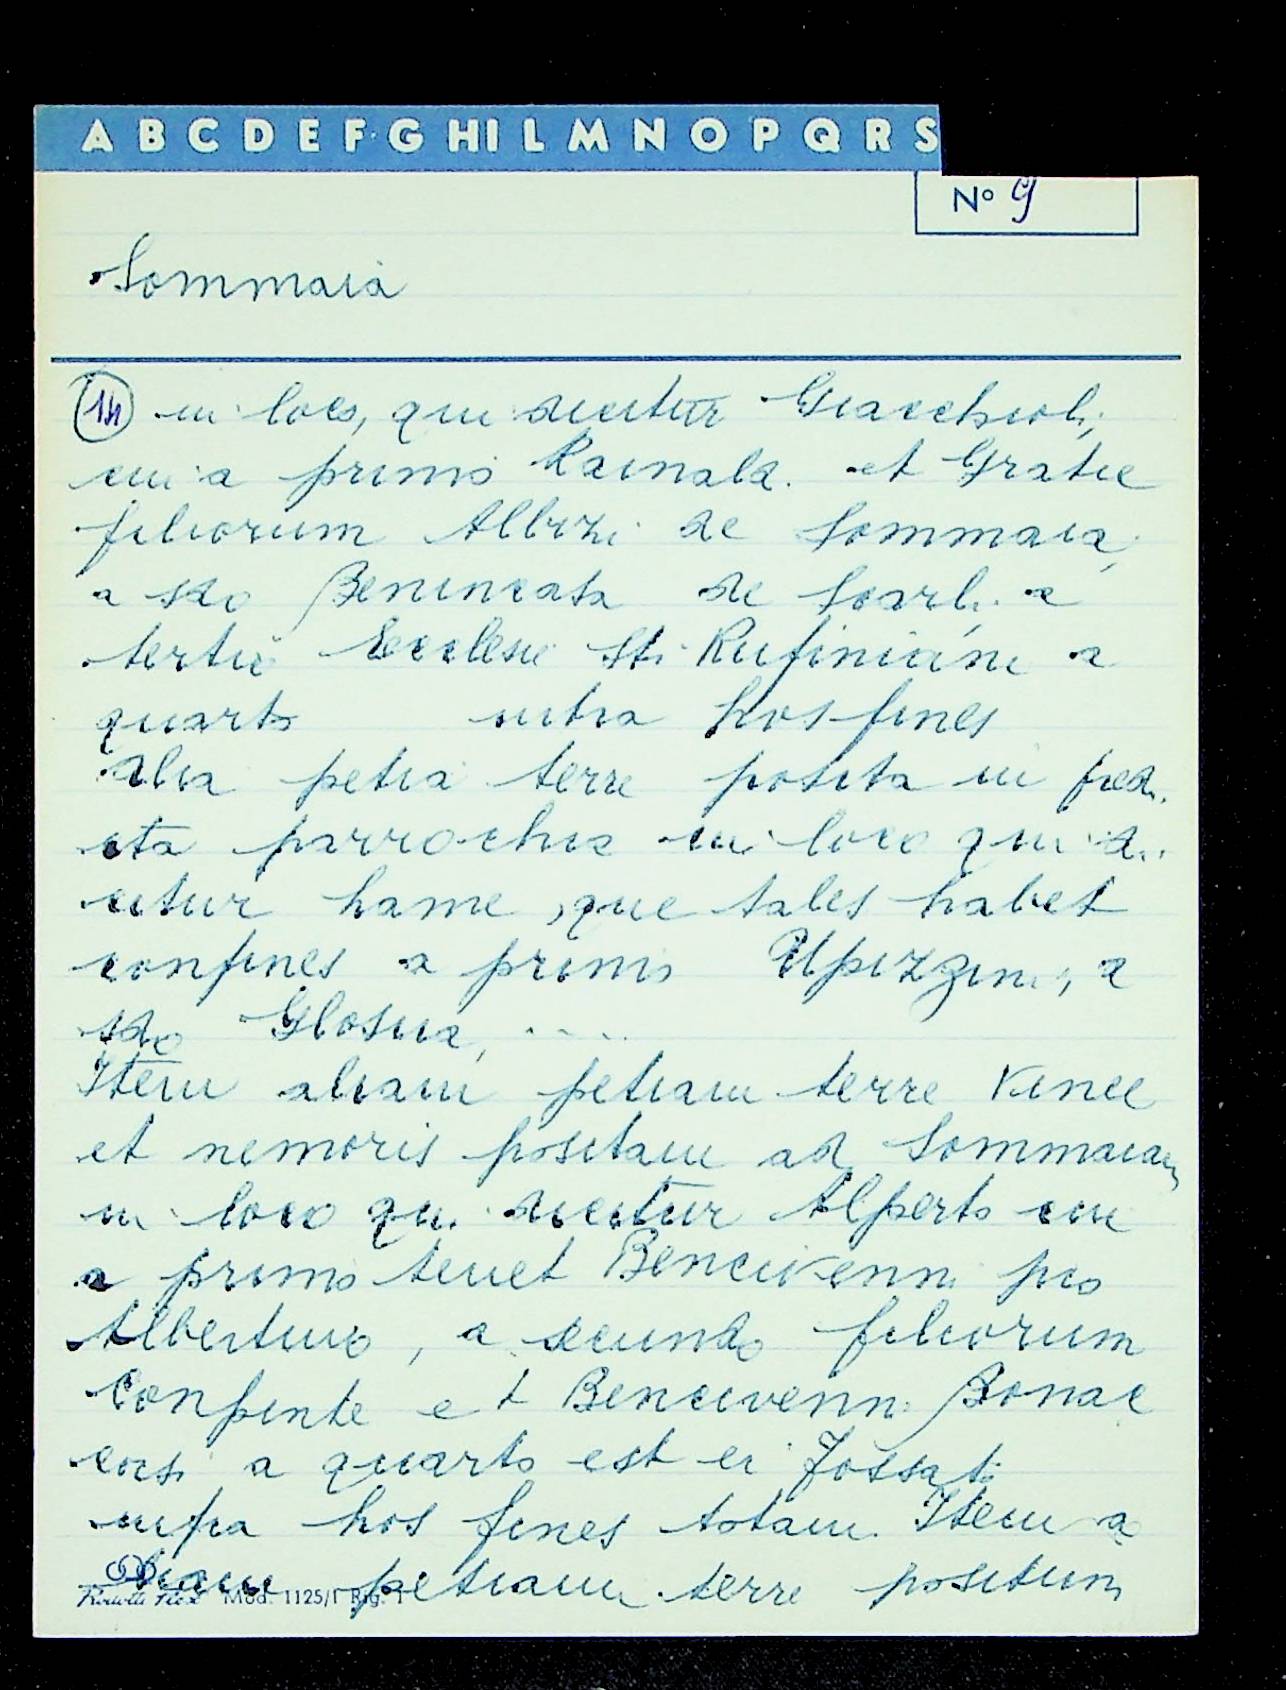 A B C D E F G HI L M N O P Q R S
Nº 9
Sommaia
14 in loco, qui dicitur Giacchioli,
cui a primo Rainald. et Gratie
filiorum Albizi de Sommaia,
a sdo Benincasa de Soarli, a
tertio Ecclesie Sti Rufiniani a
quarto intra hos fines
Alia petia terre posita in pred.
cta parrochia in loco qui di
citur hame, que tales habet
confines a primo Upizzini, a
sdo Glosua, ....
Item aliam petiam terre vinee
et nemoris positam ad Sommaiam
in loco qui dicitur Alperto cui
a primo tenet Bencivenni pro
Albertino, a secundo filiorum
Conpinte et Bencivenni Bonac
corsi a quarto est ei Fossati
infra hos fines totam. Item a
liam petiam terre positum
Mod. 1125/1 Rig. 1